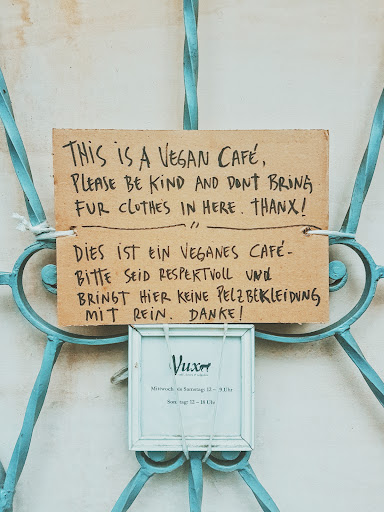 THIS IS A VEGAN CAFÉ,
PLEASE BE KIND AND DONT BRING
FUR CLOTHES IN HERE. THANX!
"
DIES IST EIN VEGANES CAFÉ-
BITTE SEID RESPEKTVOLL UND
BRINGT HIER KEINE PELZBEKLEIDUNG
MIT REIN. DANKE!
Vux
Mittwoch
Samstag: 12 -
Uhr
tag: 12 - 18 Uhr